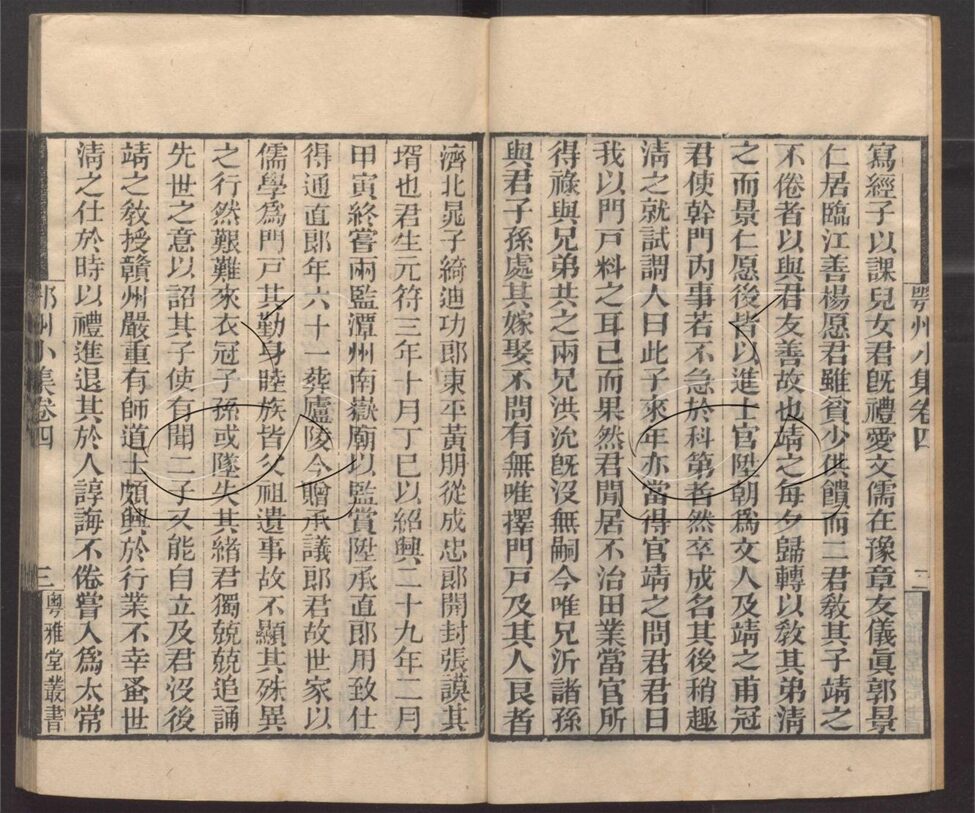 鄂州小集卷四
二
寫經子以課兒女君旣禮愛文儒在豫章友儀眞郭景
仁居臨江善楊愿君雖貧少供饋而二君敎其子靖之
不倦者以與君友善故也靖之每夕歸轉以敎其弟淸
之而景仁愿後皆以進士官陞朝爲文人及靖之甫冠
君使幹門內事若不急於科第者然卒成名其後稍趣
淸之就試謂人曰此子來年亦當得官靖之問君君曰
我以門戸料之耳已而果然君閒居不治田業當官所
得祿與兄弟共之兩兄洪沇旣沒無嗣今唯兄沂諸孫
與君子孫處其嫁娶不問有無唯擇門戸及其人良者
濟北晁子綺迪功郞東平黃朋從成忠郞開封張謨其
壻也君生元符三年十月丁巳以紹興二十九年二月
甲寅終嘗兩監潭州南嶽廟以監賞陞承直郞用致仕
得通直郞年六十一葬廬陵今贈承議郞君故世家以
儒學爲門戸其勤身睦族皆父祖遺事故不顯其殊異
之行然艱難來衣冠子孫或墜失其緒君獨兢兢追誦
先世之意以詔其子使有聞二子又能自立及君沒後
靖之敎授贛州嚴重有師道士頗興於行業不幸蚤世
淸之仕於時以禮進退其於人諄誨不倦嘗入爲太常
鄂州小集卷四
三
粵雅堂叢書